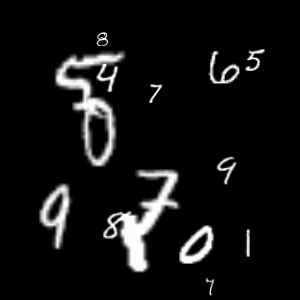 8
5 4 7 6 5
0
9
9 8 7 0 1
7